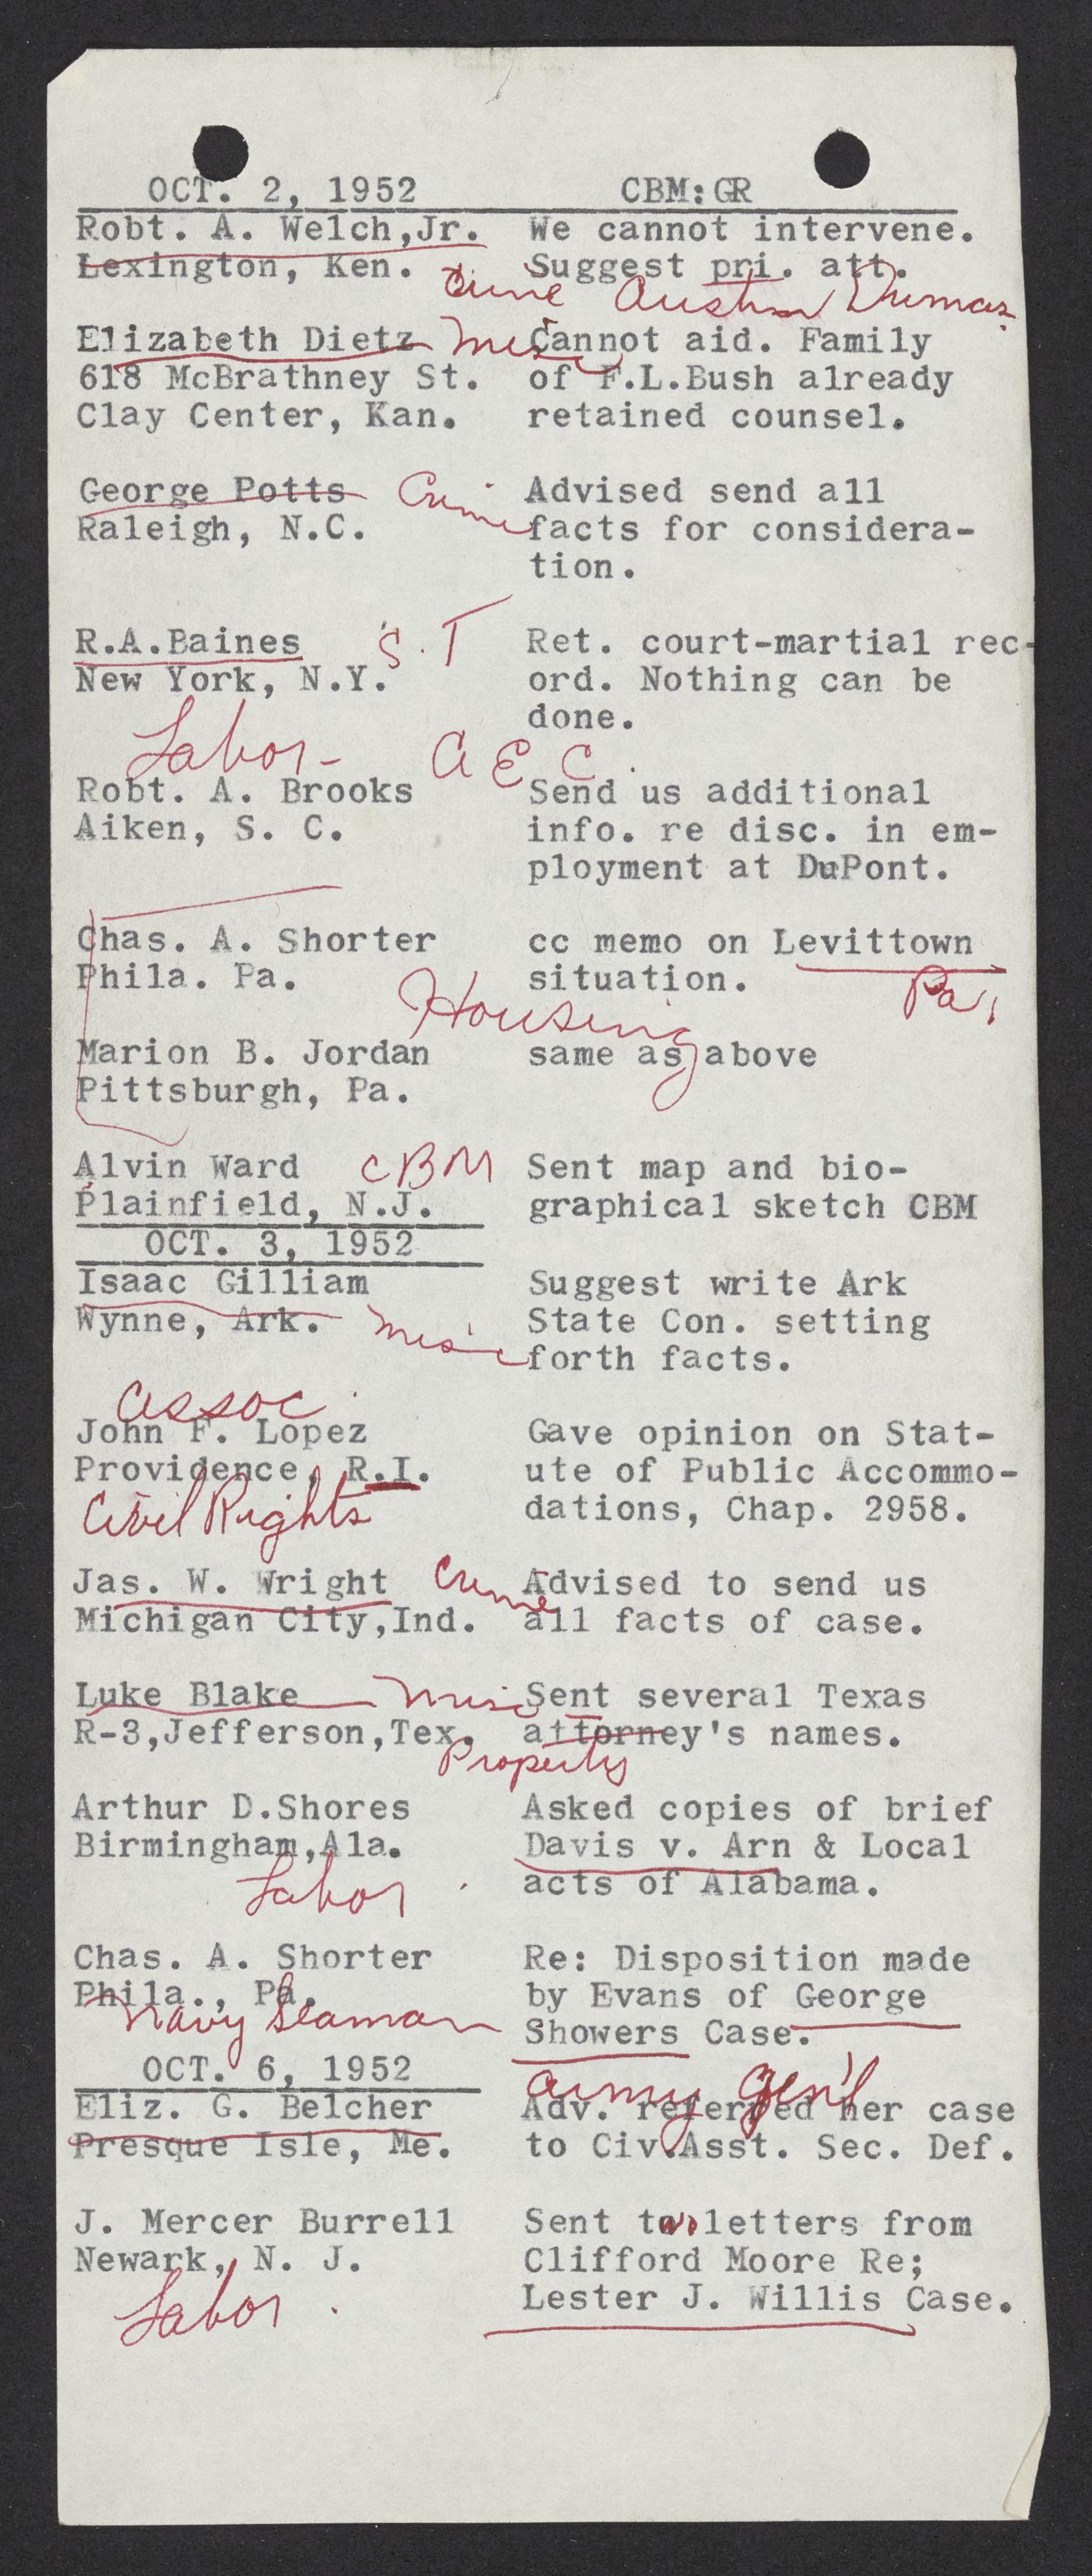 OCT. 2, 1952 CBM:GR
Robt. A. Welch,Jr. We cannot intervene.
Lexington, Ken. Suggest pri. att.
Crime Austin Dumas
Elizabeth Dietz Misc Cannot aid. Family
618 McBrathney St. of F.L.Bush already
Clay Center, Kan. retained counsel.
George Potts Crime Advised send all
Raleigh, N.C. facts for considera-
tion.
R.A.Baines S.T Ret. court-martial rec-
New York, N.Y. ord. Nothing can be
done.
Labor- A E C.
Robt. A. Brooks Send us additional
Aiken, S. C. info. re disc. in em-
ployment at DuPont.
Chas. A. Shorter cc memo on Levittown
Phila. Pa. situation. Pa.
Housing
Marion B. Jordan same as above
Pittsburgh, Pa.
Alvin Ward CBM Sent map and bio-
Plainfield, N.J. graphical sketch CBM
OCT. 3, 1952
Isaac Gilliam Suggest write Ark
Wynne, Ark. Misc State Con. setting
forth facts.
Assoc.
John F. Lopez Gave opinion on Stat-
Providence, R.I. ute of Public Accommo-
Civil Rights dations, Chap. 2958.
Jas. W. Wright Crime Advised to send us
Michigan City,Ind. all facts of case.
Luke Blake Misc Sent several Texas
R-3,Jefferson,Tex. attorney's names.
Property
Arthur D.Shores Asked copies of brief
Birmingham,Ala. Davis v. Arn & Local
Labor acts of Alabama.
Chas. A. Shorter Re: Disposition made
Phila., Pa. by Evans of George
Navy Seaman Showers Case.
OCT. 6, 1952 Army Gen'l
Eliz. G. Belcher Adv. referred her case
Presque Isle, Me. to Civ.Asst. Sec. Def.
J. Mercer Burrell Sent two letters from
Newark, N. J. Clifford Moore Re;
Labor. Lester J. Willis Case.